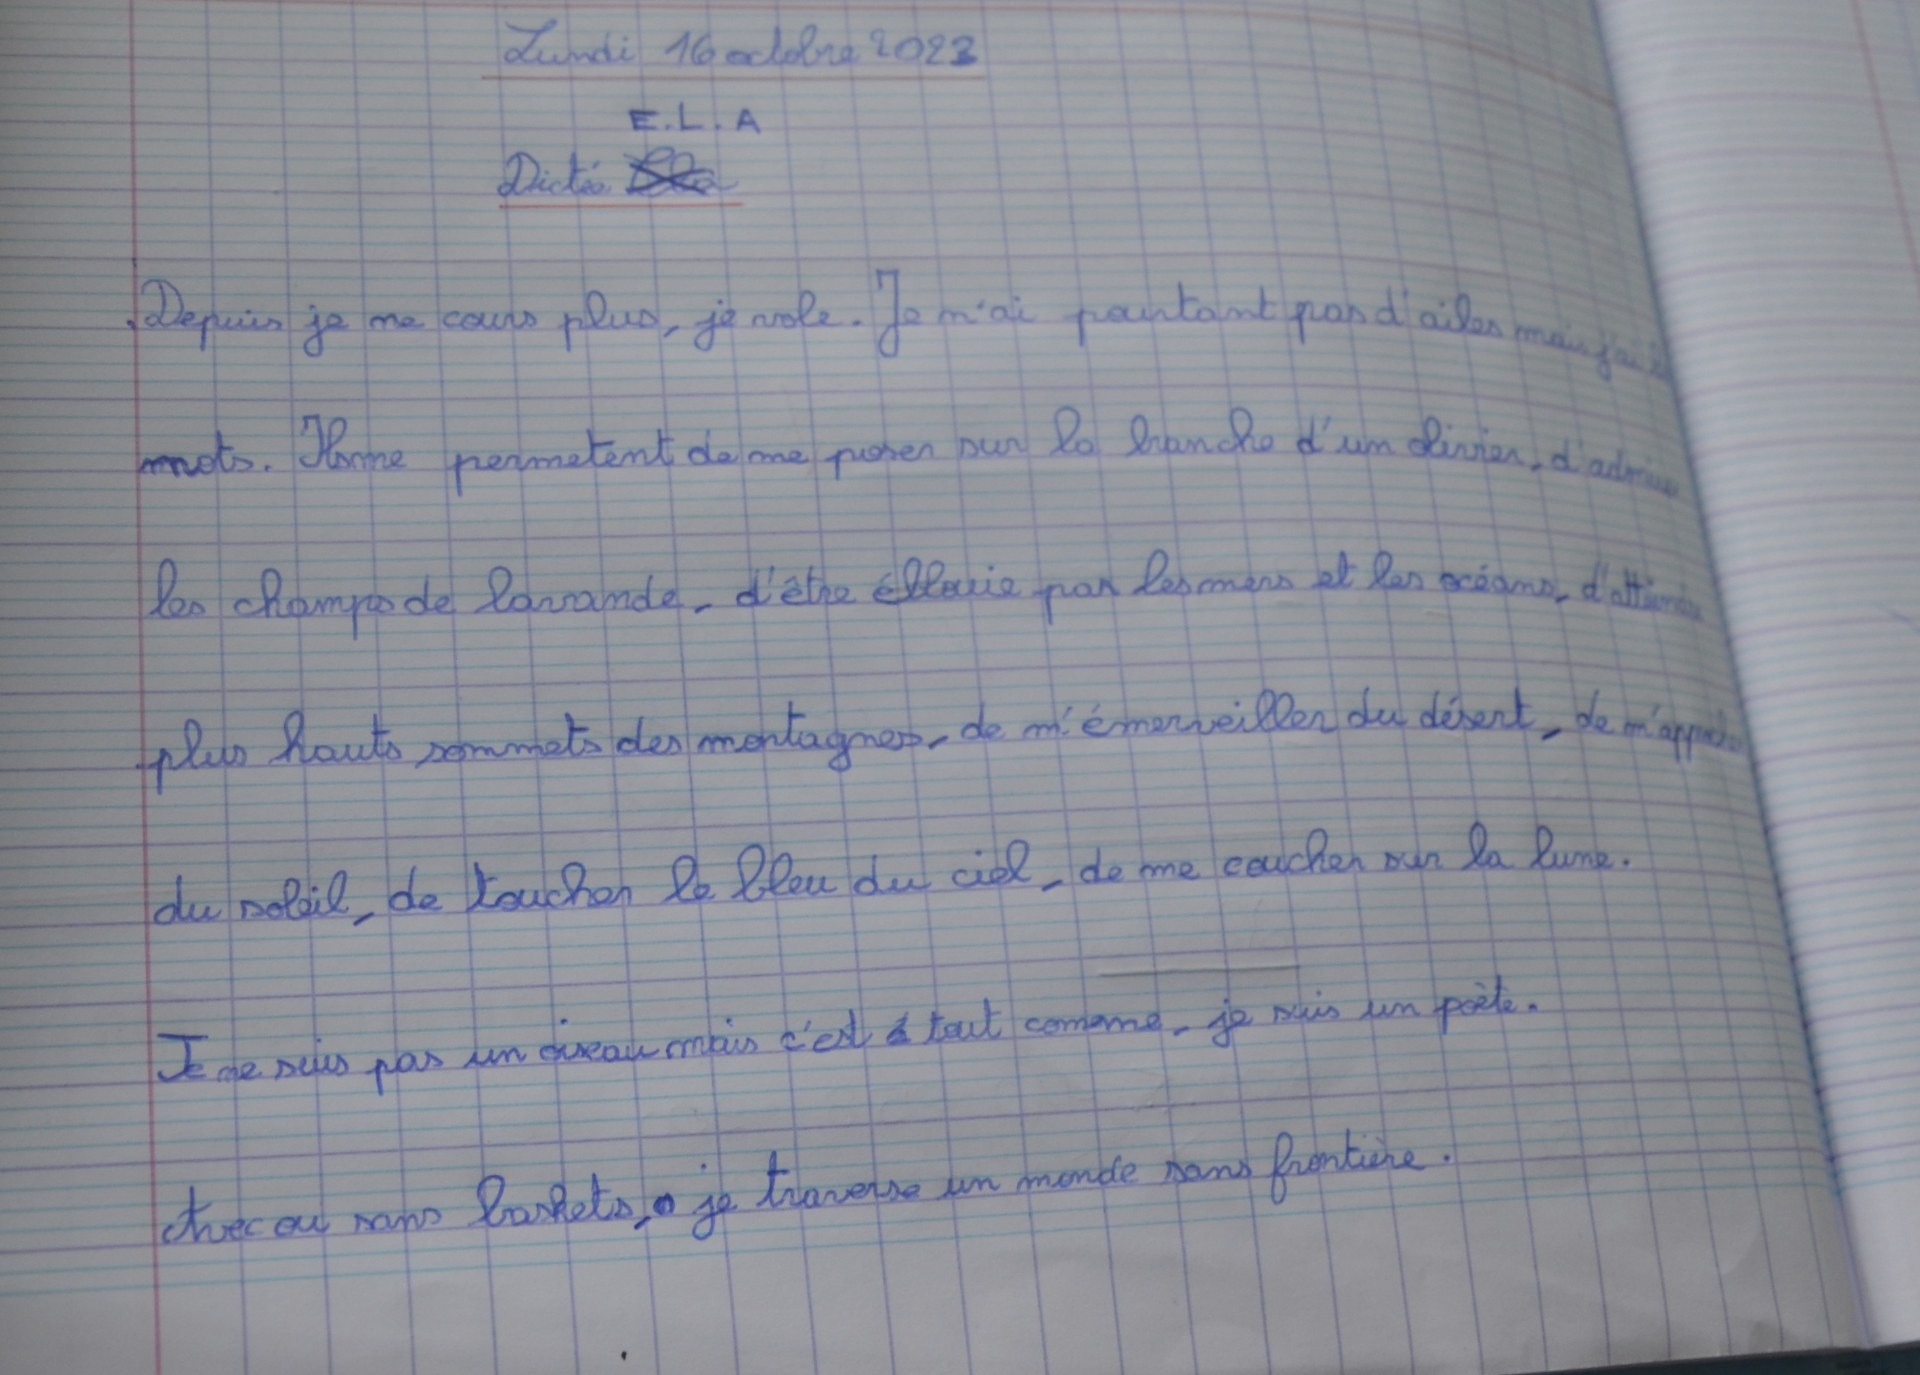 Lundi 16 octobre 2023
E.L.A
Dictée
Depuis je ne cours plus, je vole. Je n'ai pourtant pas d'ailes mais j'ai
mots. Ils me permetent de me poser sur la branche d'un olivier, d'admirer
les champs de lavande, d'être éblouie par les mers et les océans, d'atteindre
plus hauts sommets des montagnes, de m'émerveiller du désert, de m'approcher
du soleil, de toucher le bleu du ciel, de me coucher sur la lune.
Je ne suis pas un oiseau mais c'est tout comme, je suis un poète.
Avec ou sans baskets, je traverse un monde sans frontière.